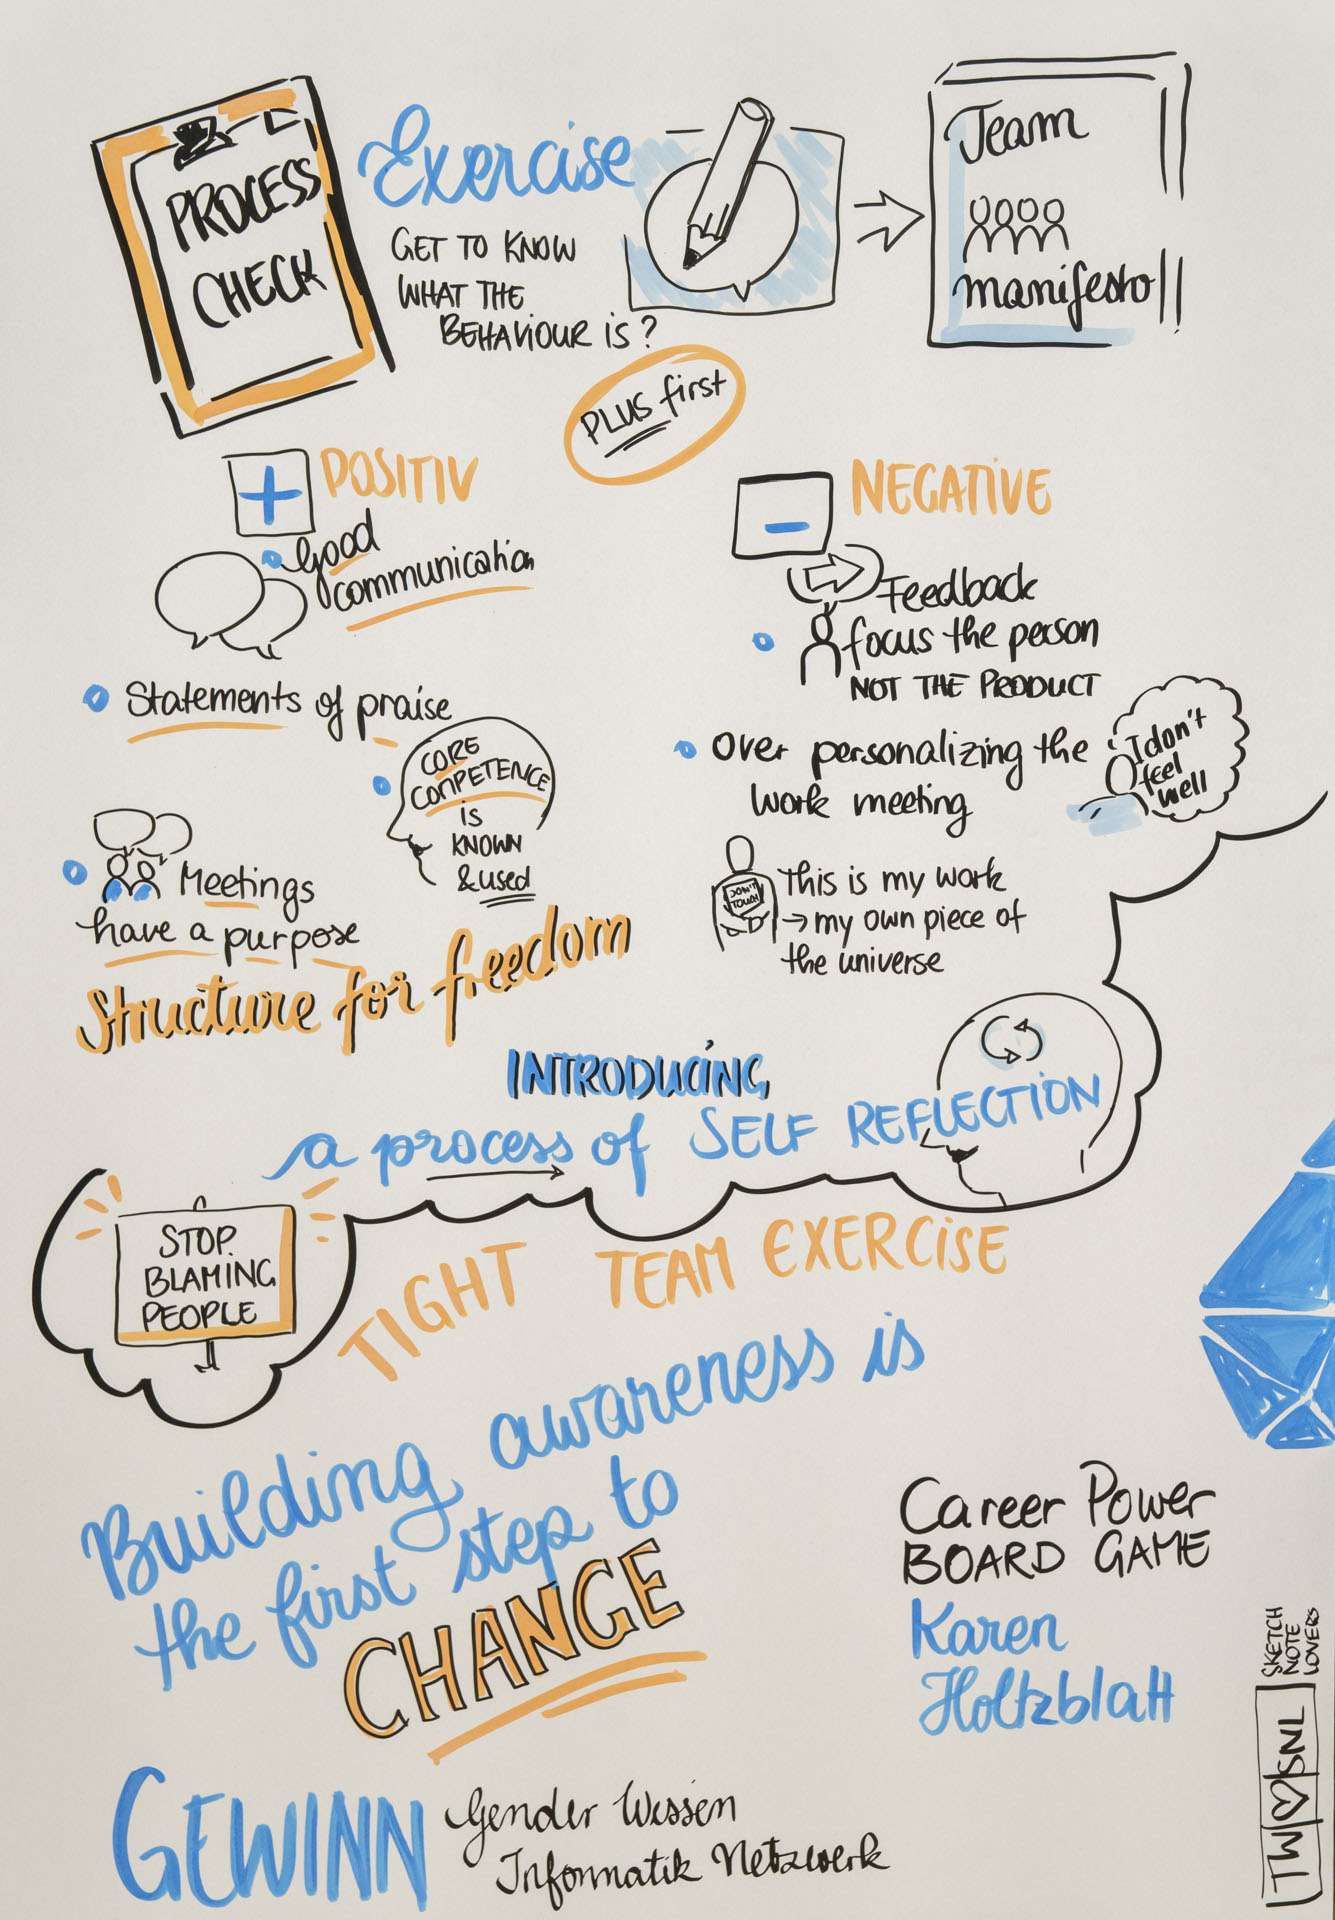 PROCESS
CHECK
Exercise
GET TO KNOW
WHAT THE
BEHAVIOUR IS?
Team
manifesto
PLUS first
+ POSITIV
Good
communication
Statements of praise
CORE
COMPETENCE
is
KNOWN
& used
Meetings
have a purpose
Structure for freedom
- NEGATIVE
Feedback
focus the person
NOT THE PRODUCT
Over personalizing the
work meeting
I don't
feel
well
DON'T
This is my work
→ my own piece of
the universe
INTRODUCING
a process of SELF REFLECTION
STOP
BLAMING
PEOPLE
TIGHT TEAM EXERCISE
Building awareness is
the first step to
CHANGE
Career Power
BOARD GAME
Karen
Holtzblatt
GEWINN
Gender Wissen
Informatik Netzwerk
TW♡SNL
SKETCH
NOTE
LOVERS